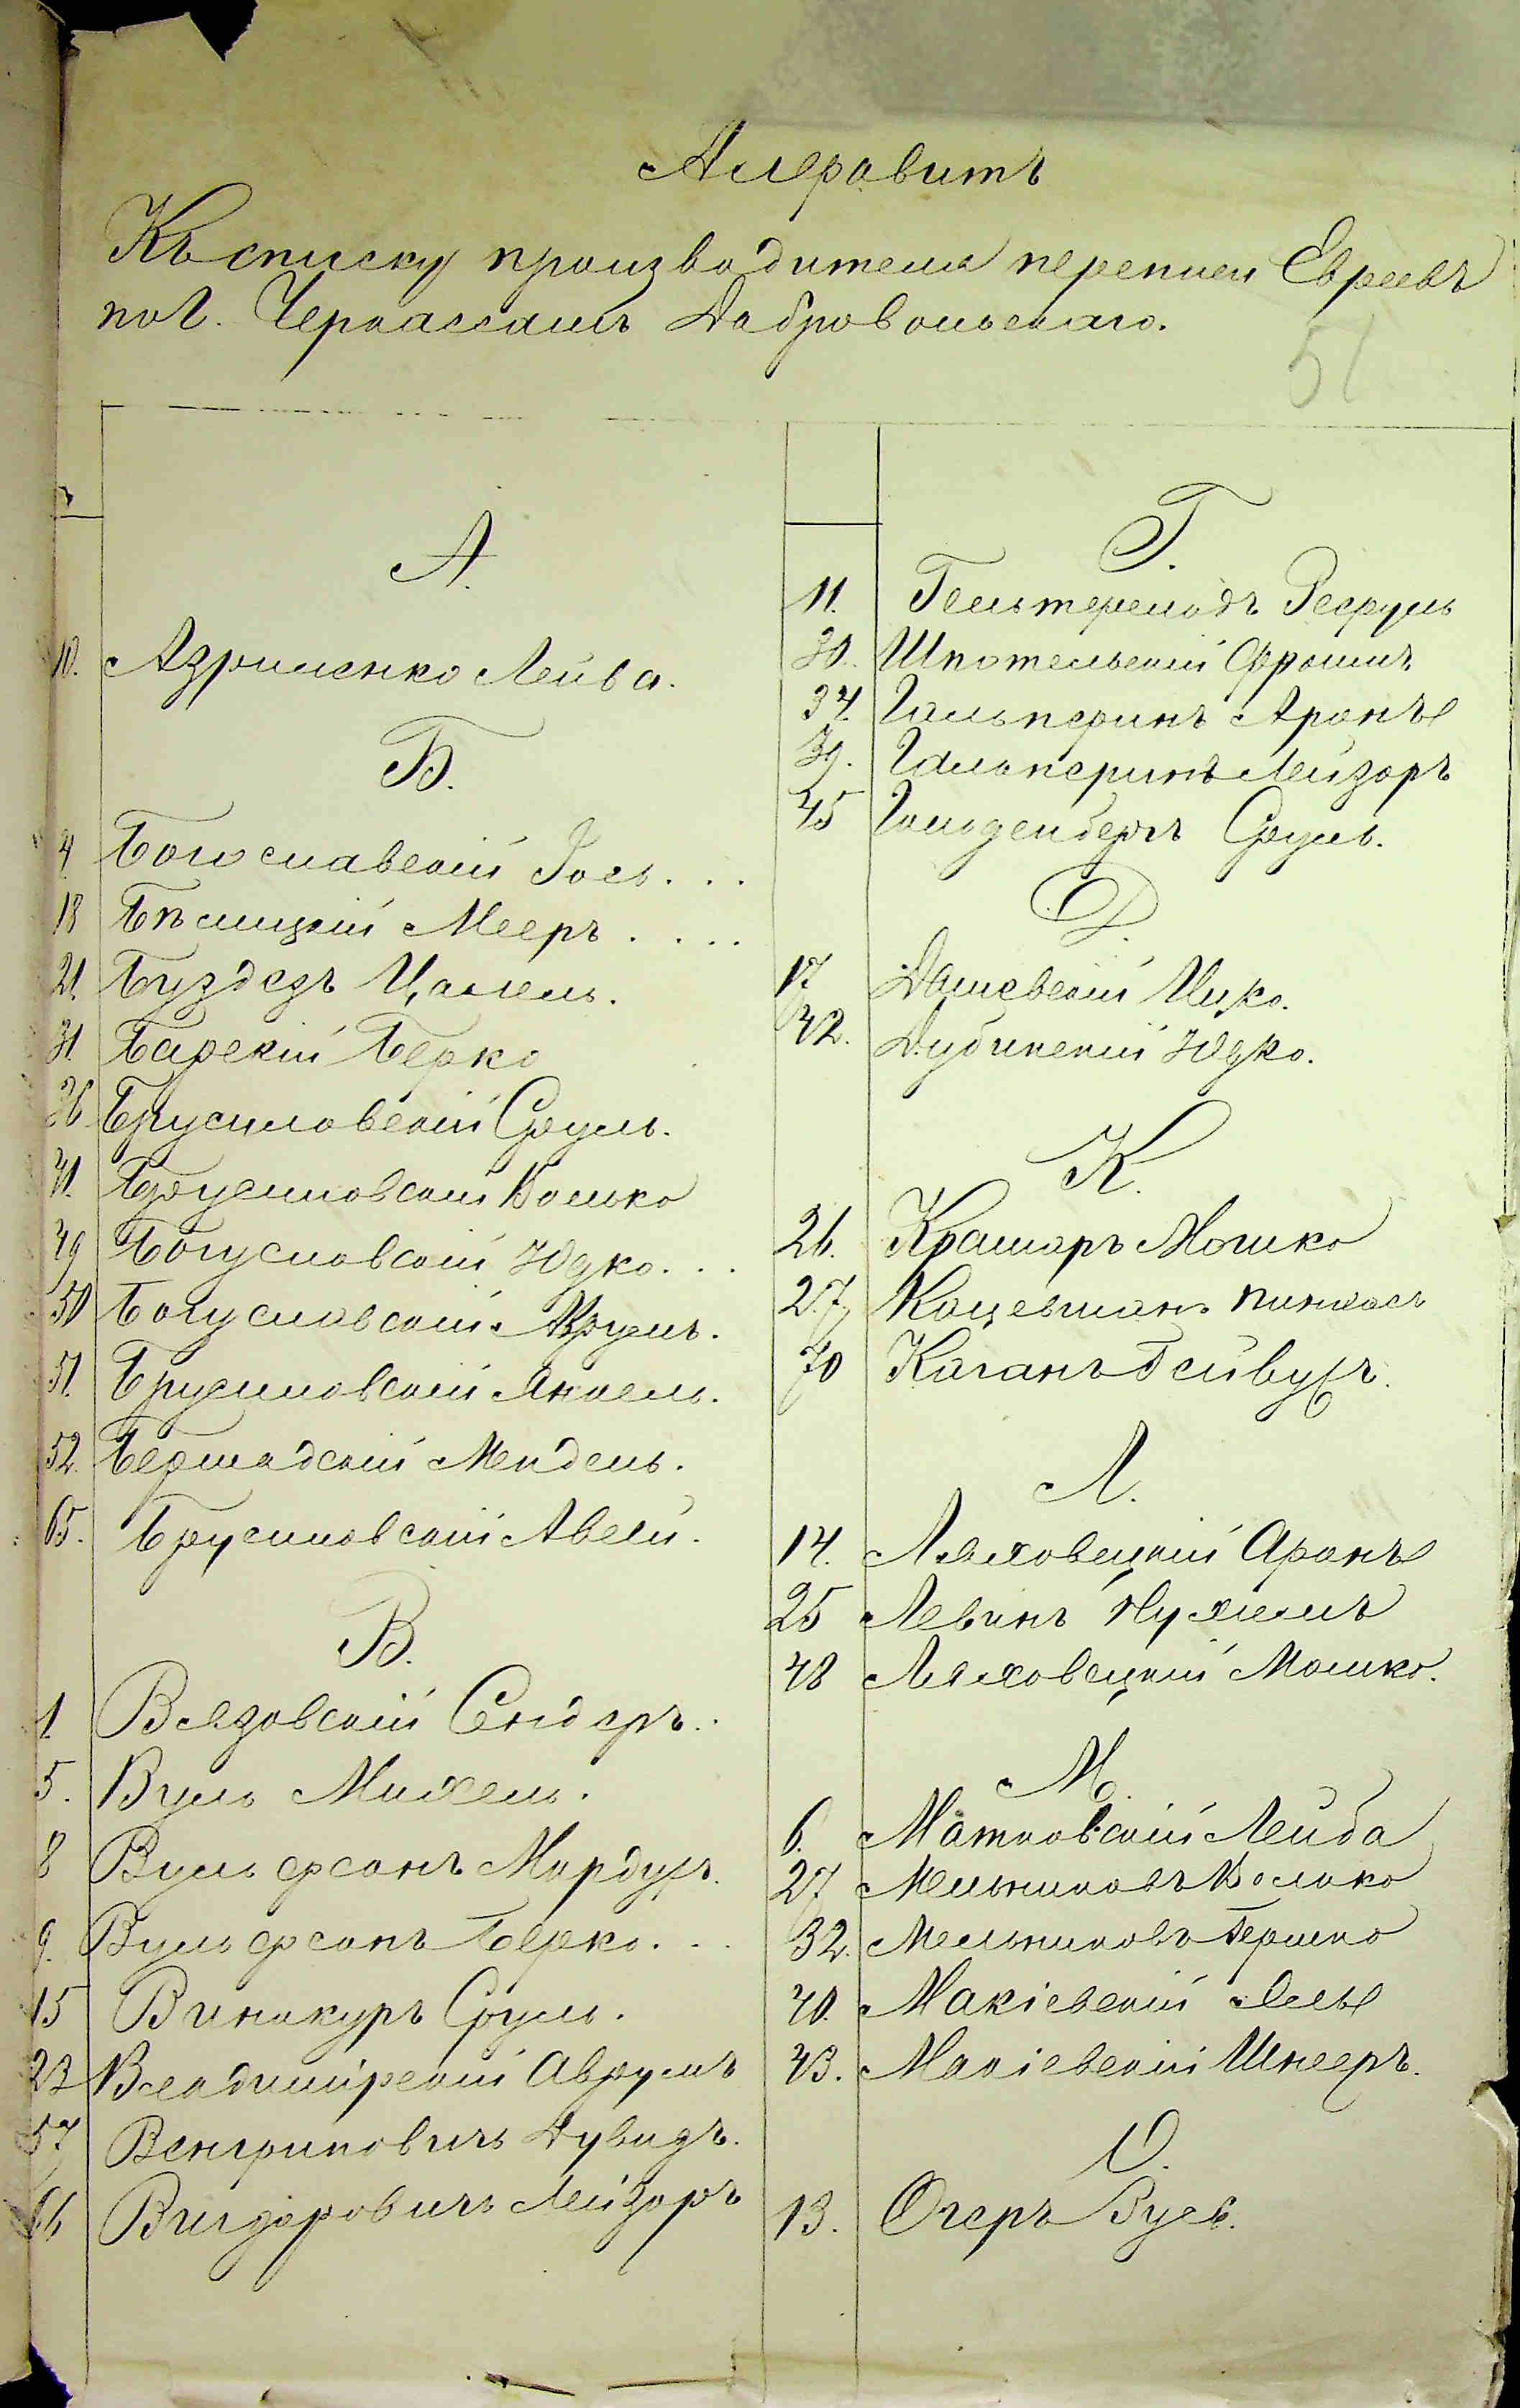 Алфавитъ
Къ списку производителя переписи Евреевъ
по г. Черкассамъ Добровольскаго.
51
А.
10. Азриленко Лейба.
Б.
4 Богуславскій Іось...
18 Бѣлицкій Мееръ....
21. Буздезъ Цалель.
31. Барскій Берко
36 Брусиловскій Сруль.
41. Брусиловскій Волько
49 Богуславскій Юдко...
50 Богуславскій Аврумъ.
51. Брусиловскій Янкель.
52. Бершадскій Мендель.
65. Брусиловскій Авелй.
В.
1. Вязовскій Сендеръ..
5. Вуль Михель.
8 Вульфсонъ Мордухъ.
9. Вульфсонъ Берко...
15 Винокуръ Сруль.
23 Владимірскій Аврумъ
57 Венгриновичъ Дувидъ.
66 Вигдоровичъ Лейзоръ
Г.
11. Рефуль
30. Шпотельскій Фроимъ
34. Гальперинъ Аронъ
39. Гальперинъ Лейзоръ
45 Голденбергъ Сруль.
Д.
17 Дашевскій Ицко.
42. Дубинскій Юдко.
К.
26. Крамаръ Мошко
27. Коцевманъ Пинхасъ
70 Коганъ Фейвухъ.
Л.
14. Ляховецкій Аронъ
25 Левинъ Нухимъ
48 Ляховецкій Мошко.
М.
6. Матновскій Лейба
27 Мельниковъ Волько
32. Мельниковъ Гершко
40. Макіевскій Эль
43. Макіевскій Шнееръ.
О.
13. Огеръ Зусь.